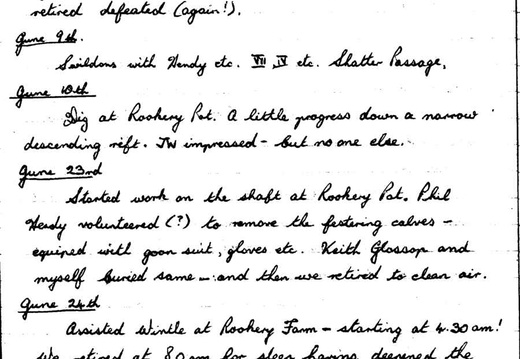 retired defeated (again!).
June 9th.
Swildons with Hendy etc. VII, IV etc. Shatter Passage,
June 10th
Dig at Rookery Pot. A little progress down a narrow
descending rift. JW impressed - but no one else.
June 23rd
Started work on the shaft at Rookery Pot. Phil
Hendy volunteered (?) to remove the festering calves -
equiped with goon suit, gloves etc. Keith Glossop and
myself buried same - and then we retired to clean air.
June 24th
Assisted Wintle at Rookery Farm - starting at 4.30am!
We retired at 8.0am for sleep having deepened the